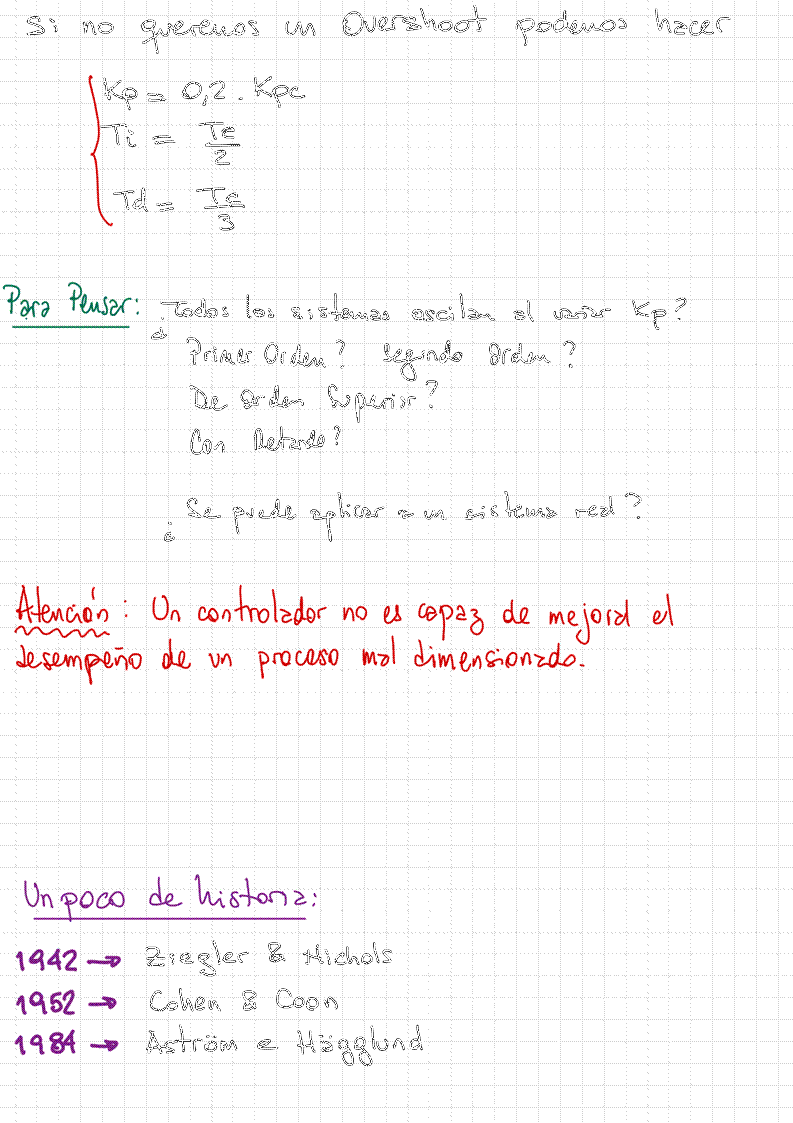 Si no queremos un Overshoot podemos hacer
Kp = 0,2 . Kpc
Ti = Tc/2
Td = Tc/3
Para Pensar: ¿Todos los sistemas oscilan al variar Kp?
Primer Orden? Segundo Orden?
De orden Superior?
Con Retardo?
¿Se puede aplicar a un sistema real?
Atención: Un controlador no es capaz de mejoral el
desempeño de un proceso mal dimensionado.
Un poco de historia:
1942 → Ziegler & Nichols
1952 → Cohen & Coon
1984 → Aström e Hägglund